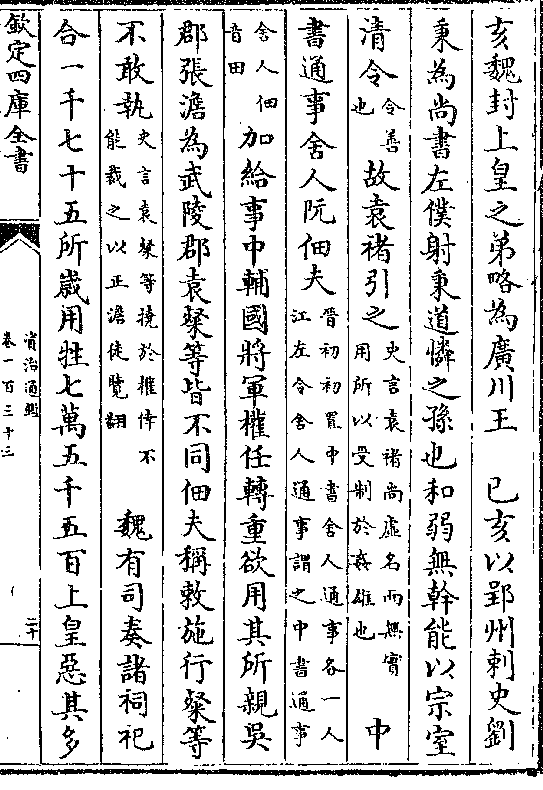 亥魏封上皇之弟略為廣川王　己亥以郢州刺史劉
秉為尚書左僕射秉道憐之孫也和弱無幹能以宗室
清令令善也故袁褚引之史言袁褚尚虛名而無實用所以受制於姦雄也　中
書通事舍人阮佃夫晉初初置中書舍人通事各一人江左令舍人通事謂之中書通事
舍人佃音田加給事中輔國將軍權任轉重欲用其所親吳
郡張澹為武陵郡袁粲等皆不同佃夫稱敕施行粲等
不敢執史言袁粲等撓於權倖不能裁之以正澹徒覽翻　魏有司奏諸祠祀
合一千七十五所歲用牲七萬五千五百上皇惡其多
欽定四庫全書
資治通鑑
卷一百三十三
二十